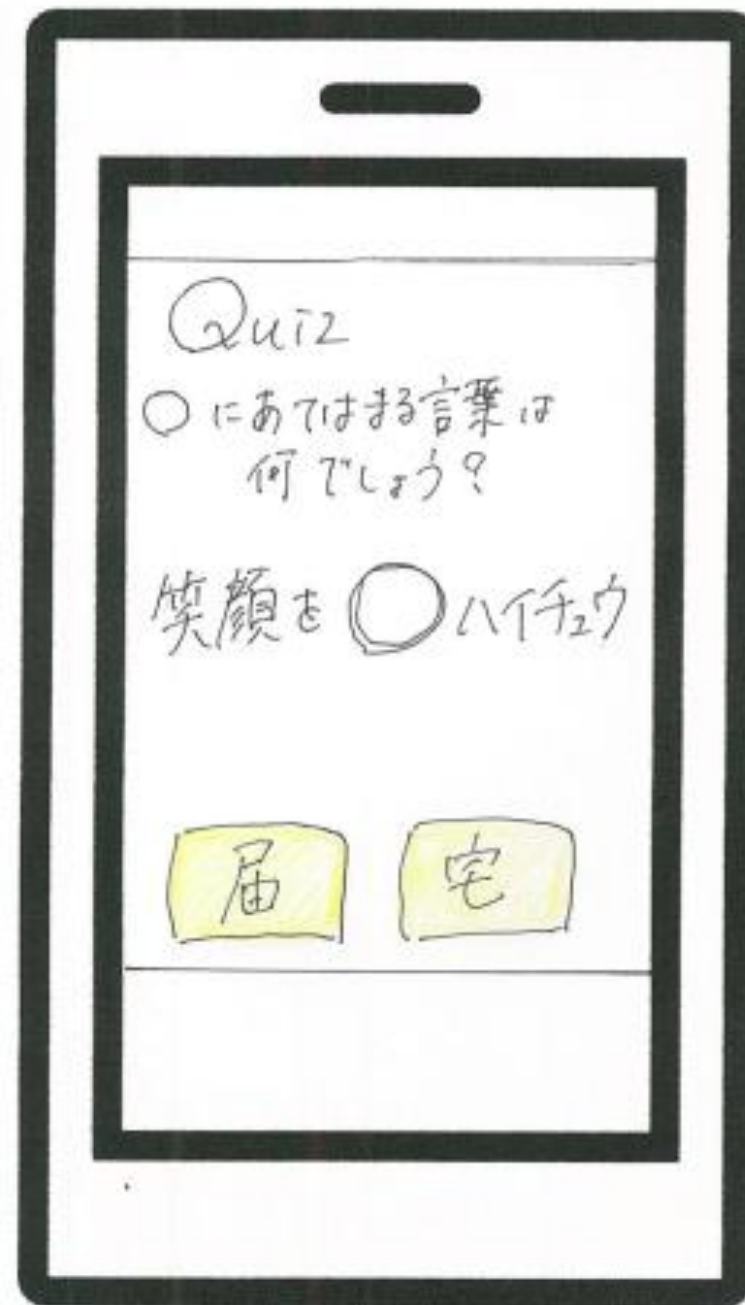 Quiz
○にあてはまる言葉は
何でしょう？
笑顔を○ハイチュウ
届 宅